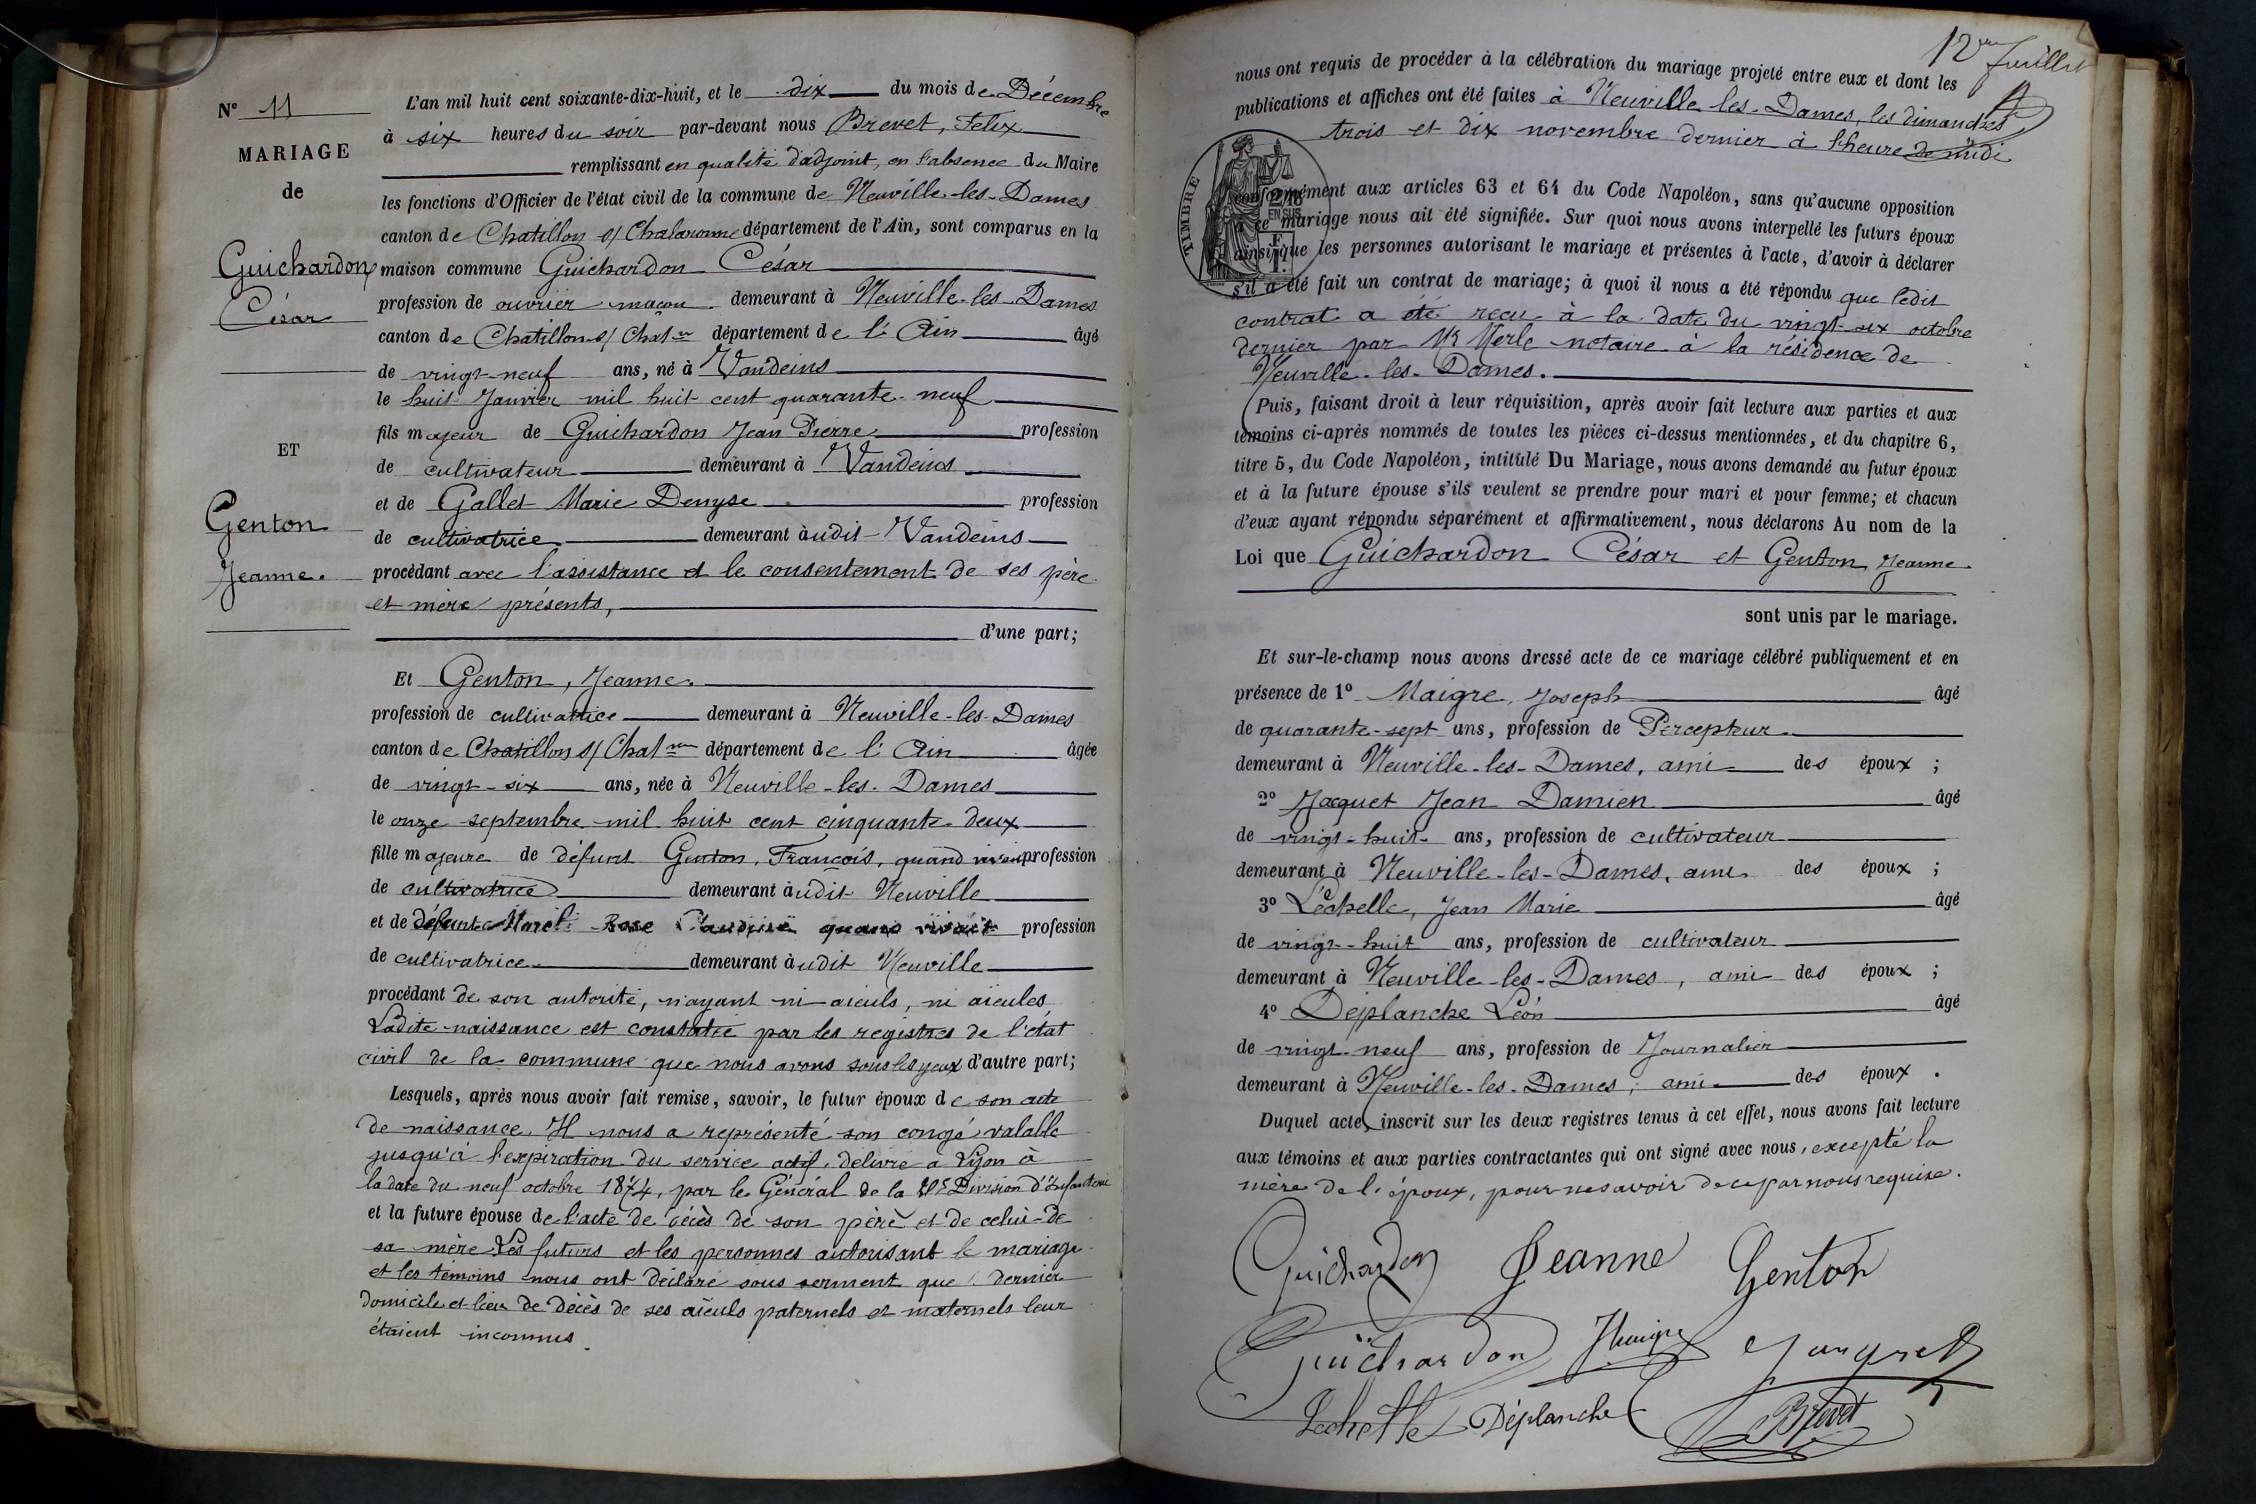 N° 11
MARIAGE
de
Guichardon
César
ET
Genton
Jeanne.
L'an mil huit cent soixante-dix-huit, et le dix du mois de Décembre
à six heures du soir par-devant nous Brevet, Felix
remplissant en qualité d'adjoint, en l'absence du Maire
les fonctions d'Officier de l'état civil de la commune de Neuville-les-Dames
canton de Chatillon s/ Chalaronne département de l'Ain, sont comparus en la
maison commune Guichardon César
profession de ouvrier maçon demeurant à Neuville-les-Dames
canton de Chatillon s/ Chalne département de l'Ain âgé
de vingt-neuf ans, né à Vandeins
le huit Janvier mil huit cent quarante-neuf
fils majeur de Guichardon Jean Pierre profession
de cultivateur demeurant à Vandeins
et de Gallet Marie Denyse profession
de cultivatrice demeurant audit Vandeins
procédant avec l'assistance et le consentement de ses père
et mère présents,
d'une part;
Et Genton, Jeanne.
profession de cultivatrice demeurant à Neuville-les-Dames
canton de Chatillon s/ Chalne département de l'Ain âgée
de vingt-six ans, née à Neuville-les-Dames
le onze septembre mil huit cent cinquante-deux
fille majeure de défunt Genton, François, quand vivait profession
de cultivatrice demeurant audit Neuville
et de défunte Rose Claudine quand vivait profession
de cultivatrice demeurant audit Neuville
procédant de son autorité, n'ayant ni aieuls, ni aïeules,
Ladite naissance est constatée par les registres de l'état
civil de la commune que nous avons sous les yeux d'autre part;
Lesquels, après nous avoir fait remise, savoir, le futur époux de son acte
de naissance. Il nous a représenté son congé valable
jusqu'à l'expiration du service actif, délivré a Lyon à
la date du neuf octobre 1874, par le Général de la Division d'Infanterie
et la future épouse de l'acte de décès de son père et de celui de
sa mère. Les futurs et les personnes autorisant le mariage
et les témoins nous ont déclaré sous serment que l. dernier
domicile et lieu de décès de ses aïeuls paternels et maternels leur
étaient inconnus.
12me feuillet
nous ont requis de procéder à la célébration du mariage projeté entre eux et dont les
publications et affiches ont été faites à Neuville-les-Dames, les dimanches
trois et dix novembre dernier à l'heure de midi
TIMBRE
2/10
EN SUS
conformément aux articles 63 et 64 du Code Napoléon, sans qu'aucune opposition
à ce mariage nous ait été signifiée. Sur quoi nous avons interpellé les futurs époux
ainsi que les personnes autorisant le mariage et présentes à l'acte, d'avoir à déclarer
s'il a été fait un contrat de mariage; à quoi il nous a été répondu que ledit
contrat a été reçu à la date du vingt-six octobre
dernier par Me Merle notaire à la résidence de
Neuville-les-Dames.
Puis, faisant droit à leur réquisition, après avoir fait lecture aux parties et aux
témoins ci-après nommés de toutes les pièces ci-dessus mentionnées, et du chapitre 6,
titre 5, du Code Napoléon, intitulé Du Mariage, nous avons demandé au futur époux
et à la future épouse s'ils veulent se prendre pour mari et pour femme; et chacun
d'eux ayant répondu séparément et affirmativement, nous déclarons Au nom de la
Loi que Guichardon César et Genton Jeanne.
sont unis par le mariage.
Et sur-le-champ nous avons dressé acte de ce mariage célébré publiquement et en
présence de 1° Maigre, Joseph âgé
de quarante-sept ans, profession de Percepteur.
demeurant à Neuville-les-Dames, ami des époux ;
2° Jacquet Jean Damien âgé
de vingt-huit ans, profession de cultivateur
demeurant à Neuville-les-Dames, ami des époux ;
3° Léchelle, Jean Marie âgé
de vingt-huit ans, profession de cultivateur
demeurant à Neuville-les-Dames, ami des époux ;
4° Déplanche Léon âgé
de vingt-neuf ans, profession de Journalier
demeurant à Neuville-les-Dames, ami des époux .
Duquel acte, inscrit sur les deux registres tenus à cet effet, nous avons fait lecture
aux témoins et aux parties contractantes qui ont signé avec nous, excepté la
mère de l'époux, pour ne savoir de ce par nous requise.
Guichardon Jeanne Genton
Guichardon JMaigre Jacquet
Lechelle Déplanche Brevet